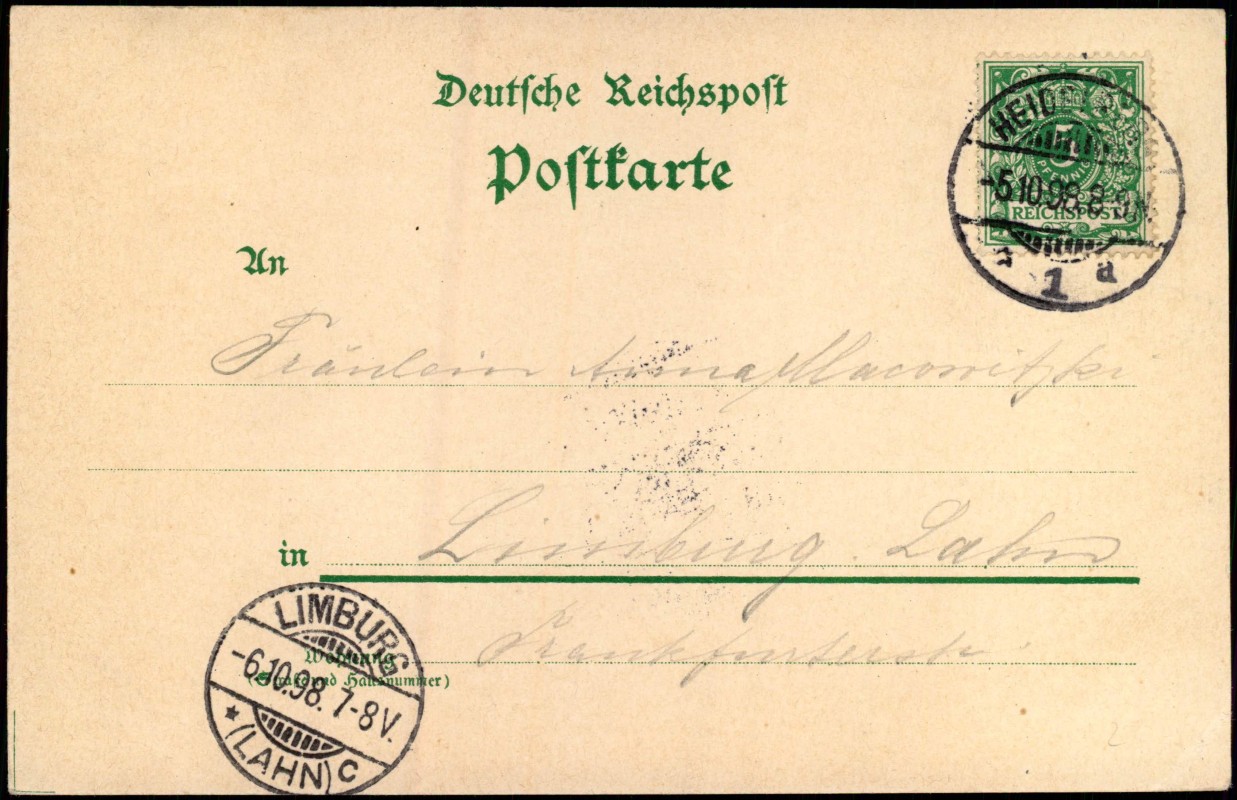 Deutsche Reichspost
Postkarte
5
PFENNIG
REICHSPOST
HEID
-5.10.98. 8-9N.
1 a
An
Fräulein Anna Macowitzki
in Limburg Lahn
Wohnung
(Straße und Hausnummer)
Frankfurterstr
LIMBURG
-6.10.98. 7-8V.
* (LAHN) c
2